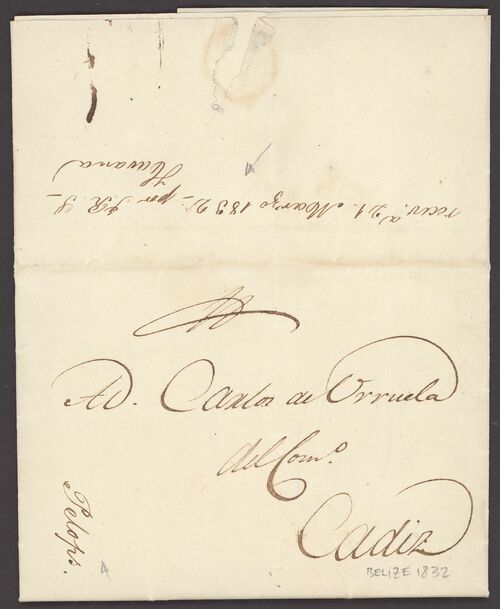 reciv. à 21. Marzo 1832 - por J. R. S -
Havana
AD. Carlos de Urruela
del Com.º
Cadiz
Pelops.
BELIZE 1832